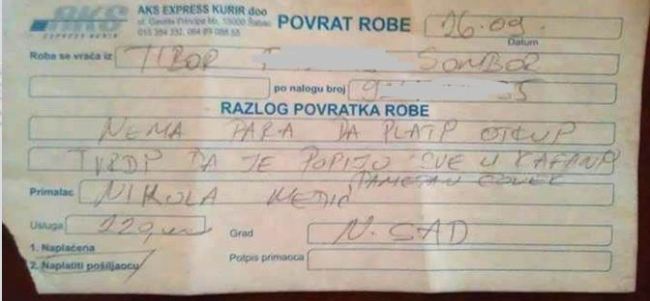 AKS
EXPRESS KURIR
AKS EXPRESS KURIR doo
ul. Gavrila Principa bb, 15000 Šabac
POVRAT ROBE
26.09
Datum
Roba se vraća iz
TIBOR
SOMBOR
po nalogu broj
RAZLOG POVRATKA ROBE
NEMA PARA DA PLATI OTKUP
TVRDI DA JE POPIJO SVE U KAFANI
PAMETAN COVEK
Primalac
NIKOLA
Usluga
Grad
N. SAD
1. Naplaćena
2. Naplatiti pošiljaocu
Potpis primaoca